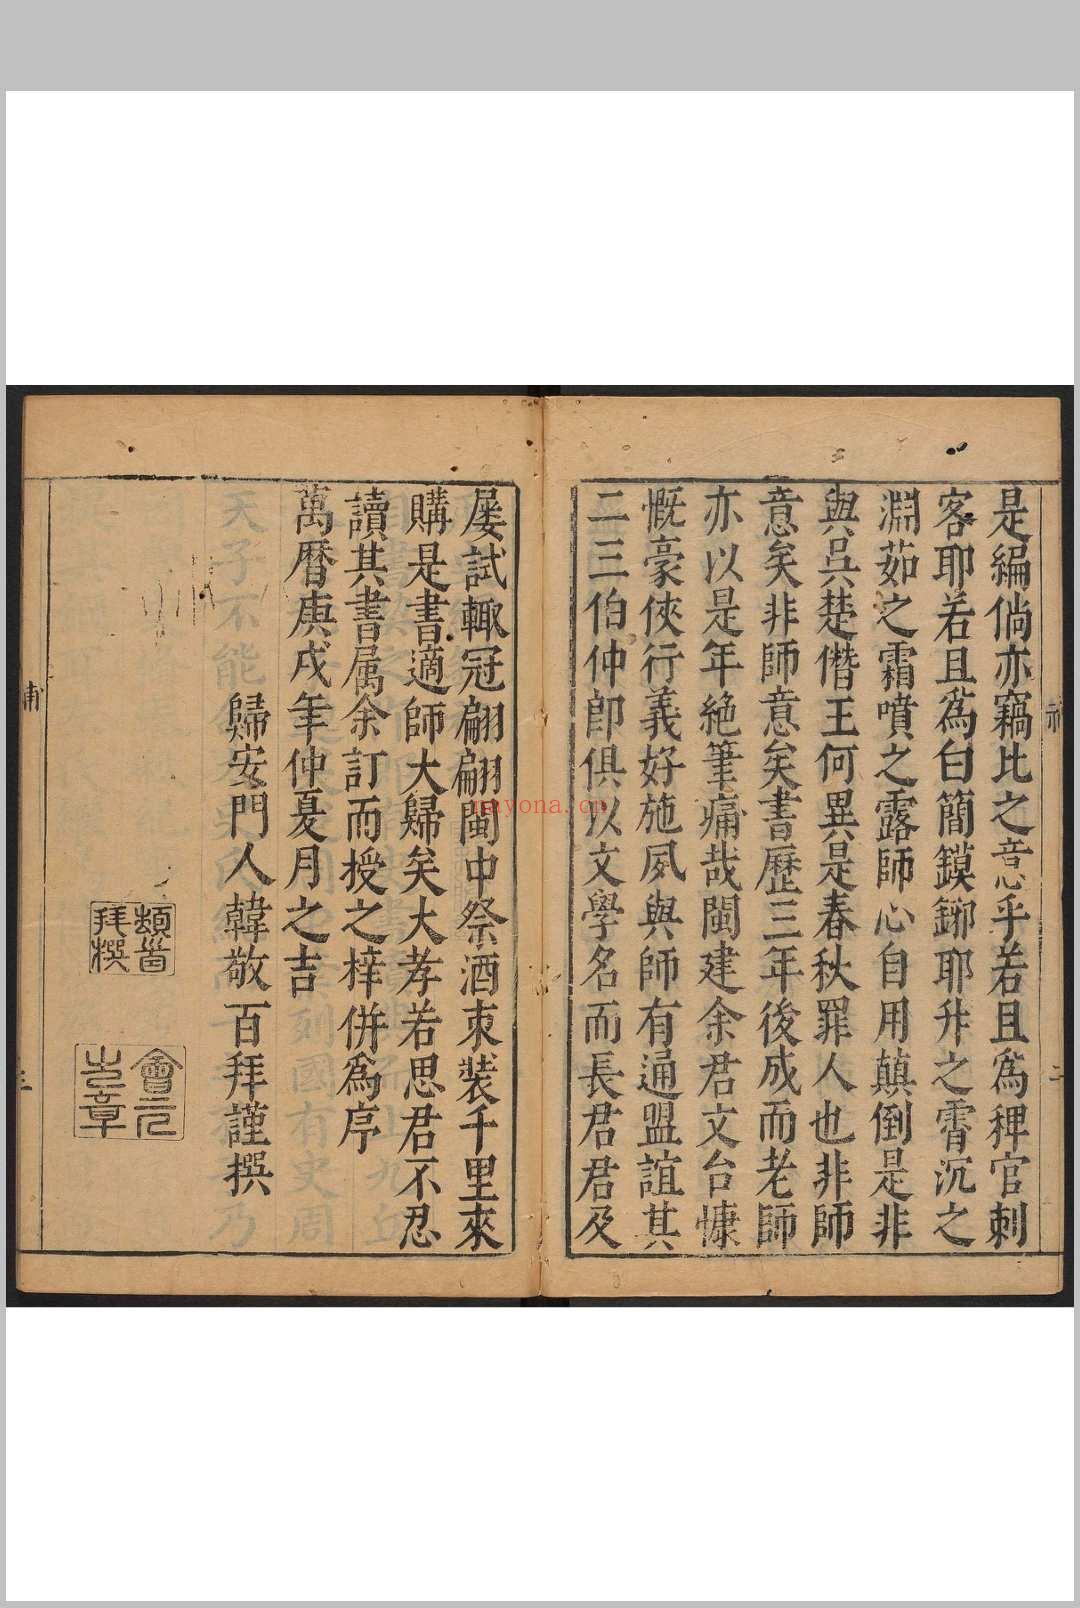 是編倘亦竊比之意乎若且爲稗官刺
客耶若且爲白簡鏌鎁耶升之霄沉之
淵茹之霜噴之露師心自用顛倒是非
與吳楚僭王何異是春秋罪人也非師
意矣非師意矣書歷三年後成而老師
亦以是年絶筆痛哉閩建余君文台慷
慨豪俠行義好施夙與師有通盟誼其
二三伯仲卽俱以文學名而長君君及
屡試輙冠翩翩閩中祭酒束装千里來
購是書適師大歸矣大孝若思君不忍
讀其書属余訂而授之梓併爲序
萬曆庚戌年仲夏月之吉
歸安門人韓敬百拜謹撰
頓首
拜撰
會元
之章
nayona.cn